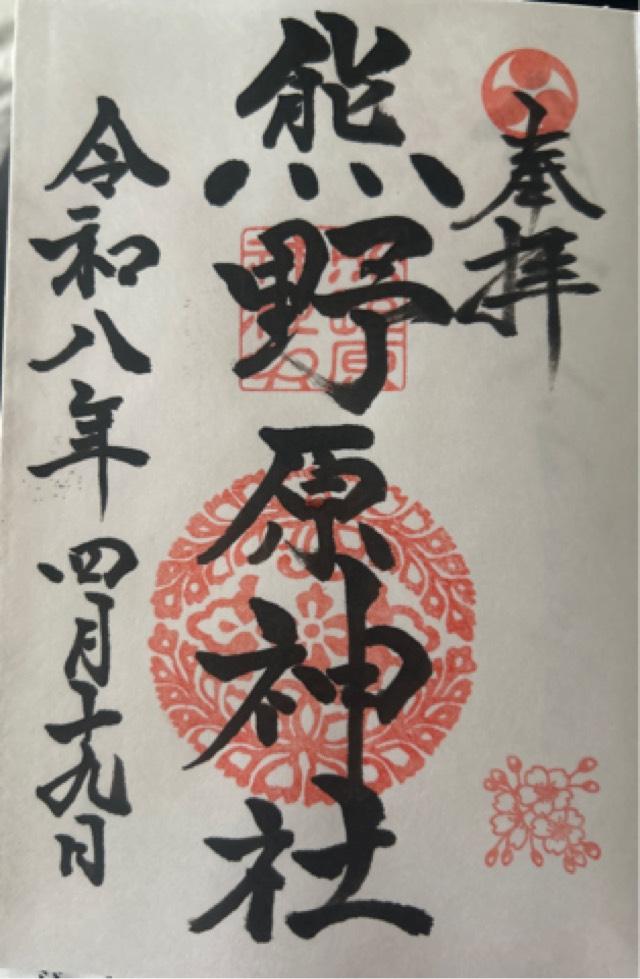 奉拝
熊野原神社
令和八年四月十九日